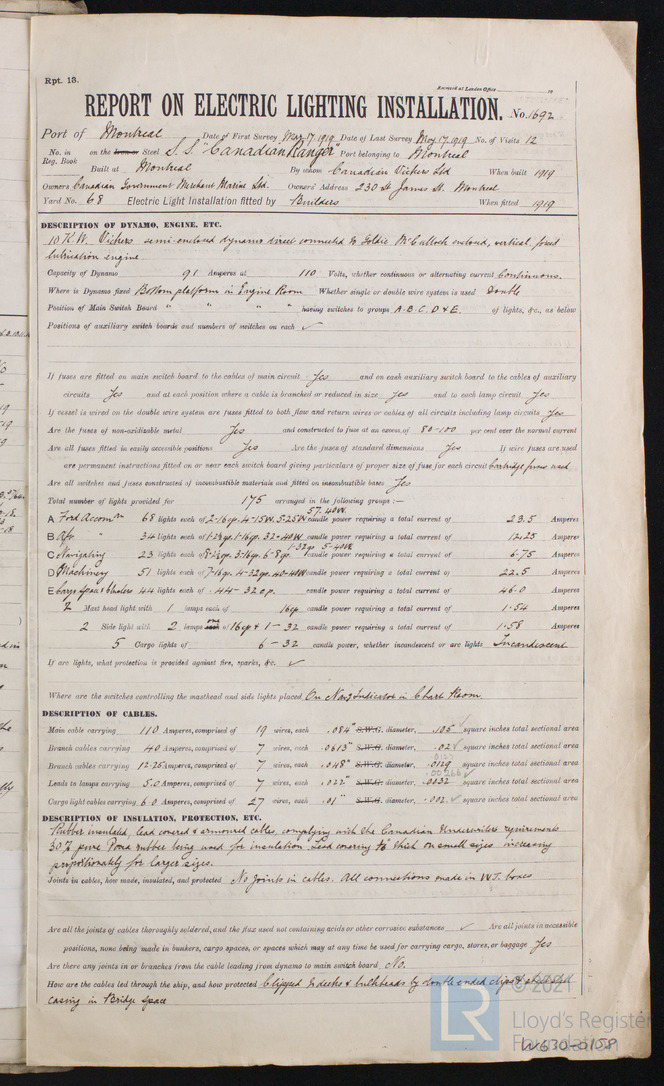 Rpt. 13.
Received at London Office
REPORT ON ELECTRIC LIGHTING INSTALLATION. No. 1692
Port of Montreal Date of First Survey Mar 17, 1919 Date of Last Survey May 17, 1919 No. of Visits 12
No. in Reg. Book on the Iron or Steel S.S "Canadian Ranger" Port belonging to Montreal
Built at Montreal By whom Canadian Vickers Ltd When built 1919
Owners Canadian Government Merchant Marine Ltd. Owners' Address 230 St James St. Montreal
Yard No. 68 Electric Light Installation fitted by Builders When fitted 1919
DESCRIPTION OF DYNAMO, ENGINE, ETC.
10 K.W. Vickers semi-enclosed dynamo direct connected to Goldie McCulloch enclosed, vertical, forced
lubrication engine
Capacity of Dynamo 91 Amperes at 110 Volts, whether continuous or alternating current Continuous.
Where is Dynamo fixed Bottom platform in Engine Room Whether single or double wire system is used Double
Position of Main Switch Board " " " " having switches to groups A. B. C. D & E. of lights, &c., as below
Positions of auxiliary switch boards and numbers of switches on each ✓
If fuses are fitted on main switch board to the cables of main circuit Yes and on each auxiliary switch board to the cables of auxiliary
circuits Yes and at each position where a cable is branched or reduced in size Yes and to each lamp circuit Yes
If vessel is wired on the double wire system are fuses fitted to both flow and return wires or cables of all circuits including lamp circuits Yes
Are the fuses of non-oxidizable metal Yes and constructed to fuse at an excess of 80-100 per cent over the normal current
Are all fuses fitted in easily accessible positions Yes Are the fuses of standard dimensions Yes If wire fuses are used
are permanent instructions fitted on or near each switch board giving particulars of proper size of fuse for each circuit Cartridge fuses used
Are all switches and fuses constructed of incombustible materials and fitted on incombustible bases Yes
Total number of lights provided for 175 arranged in the following groups :—
57. 40W.
A Ford Accomn 68 lights each of 2-16cp, 4-15W. 5-25W candle power requiring a total current of 23.5 Amperes
B Aft " 34 lights each of 1-2½cp. 1-16cp. 32-40W candle power requiring a total current of 12.25 Amperes
1-32cp 5-40W
C Navigating 23 lights each of 8-2½cp. 3-16cp. 6-8cp candle power requiring a total current of 6.75 Amperes
D Machinery 51 lights each of 7-16cp. 4-32cp. 40-40W candle power requiring a total current of 22.5 Amperes
E Cargo Space & holders 44 lights each of 44-32 cp. candle power requiring a total current of 46.0 Amperes
2 Mast head light with 1 lamps each of 16cp candle power requiring a total current of 1.54 Amperes
2 Side light with 2 lamps each one of 16cp & 1-32 candle power requiring a total current of 1.58 Amperes
5 Cargo lights of 6-32 candle power, whether incandescent or arc lights Incandescent
If arc lights, what protection is provided against fire, sparks, &c. ✓
Where are the switches controlling the masthead and side lights placed On Navg Indicator in Chart Room
DESCRIPTION OF CABLES.
Main cable carrying 110 Amperes, comprised of 19 wires, each .084" S.W.G. diameter, .105 ✓ square inches total sectional area
Branch cables carrying 40 Amperes, comprised of 7 wires, each .0613" S.W.G. diameter, .02 ✓ square inches total sectional area
Branch cables carrying 12.25 Amperes, comprised of 7 wires, each .048" S.W.G. diameter, .0129 square inches total sectional area
.00266 ✓
Leads to lamps carrying 5.0 Amperes, comprised of 7 wires, each .022" S.W.G. diameter, .0032 square inches total sectional area
Cargo light cables carrying 6.0 Amperes, comprised of 27 wires, each .01" S.W.G. diameter, .002 ✓ square inches total sectional area
DESCRIPTION OF INSULATION, PROTECTION, ETC.
Rubber insulated, lead covered & armoured cables, complying with the Canadian Underwriters requirements
30% pure Para rubber being used for insulation. Lead covering thick on small sizes increasing
proportionably for larger sizes.
Joints in cables, how made, insulated, and protected No joints in cables. All connections made in W.T. boxes
Are all the joints of cables thoroughly soldered, and the flux used not containing acids or other corrosive substances ✓ Are all joints in accessible
positions, none being made in bunkers, cargo spaces, or spaces which may at any time be used for carrying cargo, stores, or baggage Yes
Are there any joints in or branches from the cable leading from dynamo to main switch board No.
How are the cables led through the ship, and how protected Clipped to decks & bulkheads by double ended clips & sheet steel
casing in Bridge Space
© 2021
LR
Lloyd's Register
Foundation
W630-0158